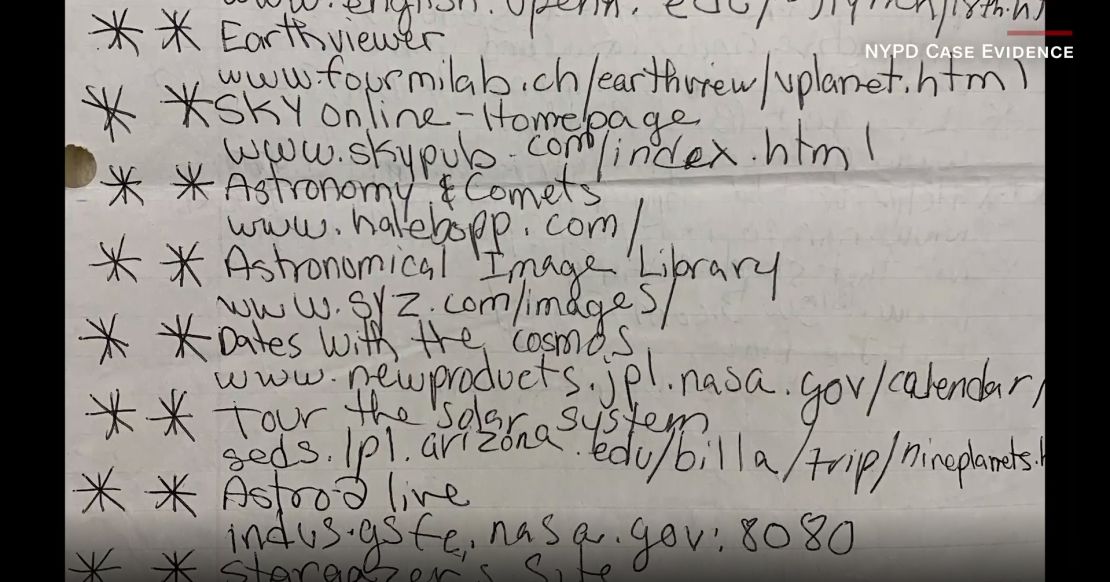 www.english.upenn.edu/
** Earthviewer
NYPD CASE EVIDENCE
www.fourmilab.ch/earthview/vplanet.html
** SKY online-Homepage
www.skypub.com/index.html
** Astronomy & Comets
www.halebopp.com/
** Astronomical Image Library
www.syz.com/images/
** Dates with the cosmos
www.newproducts.jpl.nasa.gov/calendar/
** Tour the solar system
seds.lpl.arizona.edu/billa/trip/nineplanets.h
** Astro-2 live
indus.gsfc.nasa.gov:8080
** Stargazer's Site